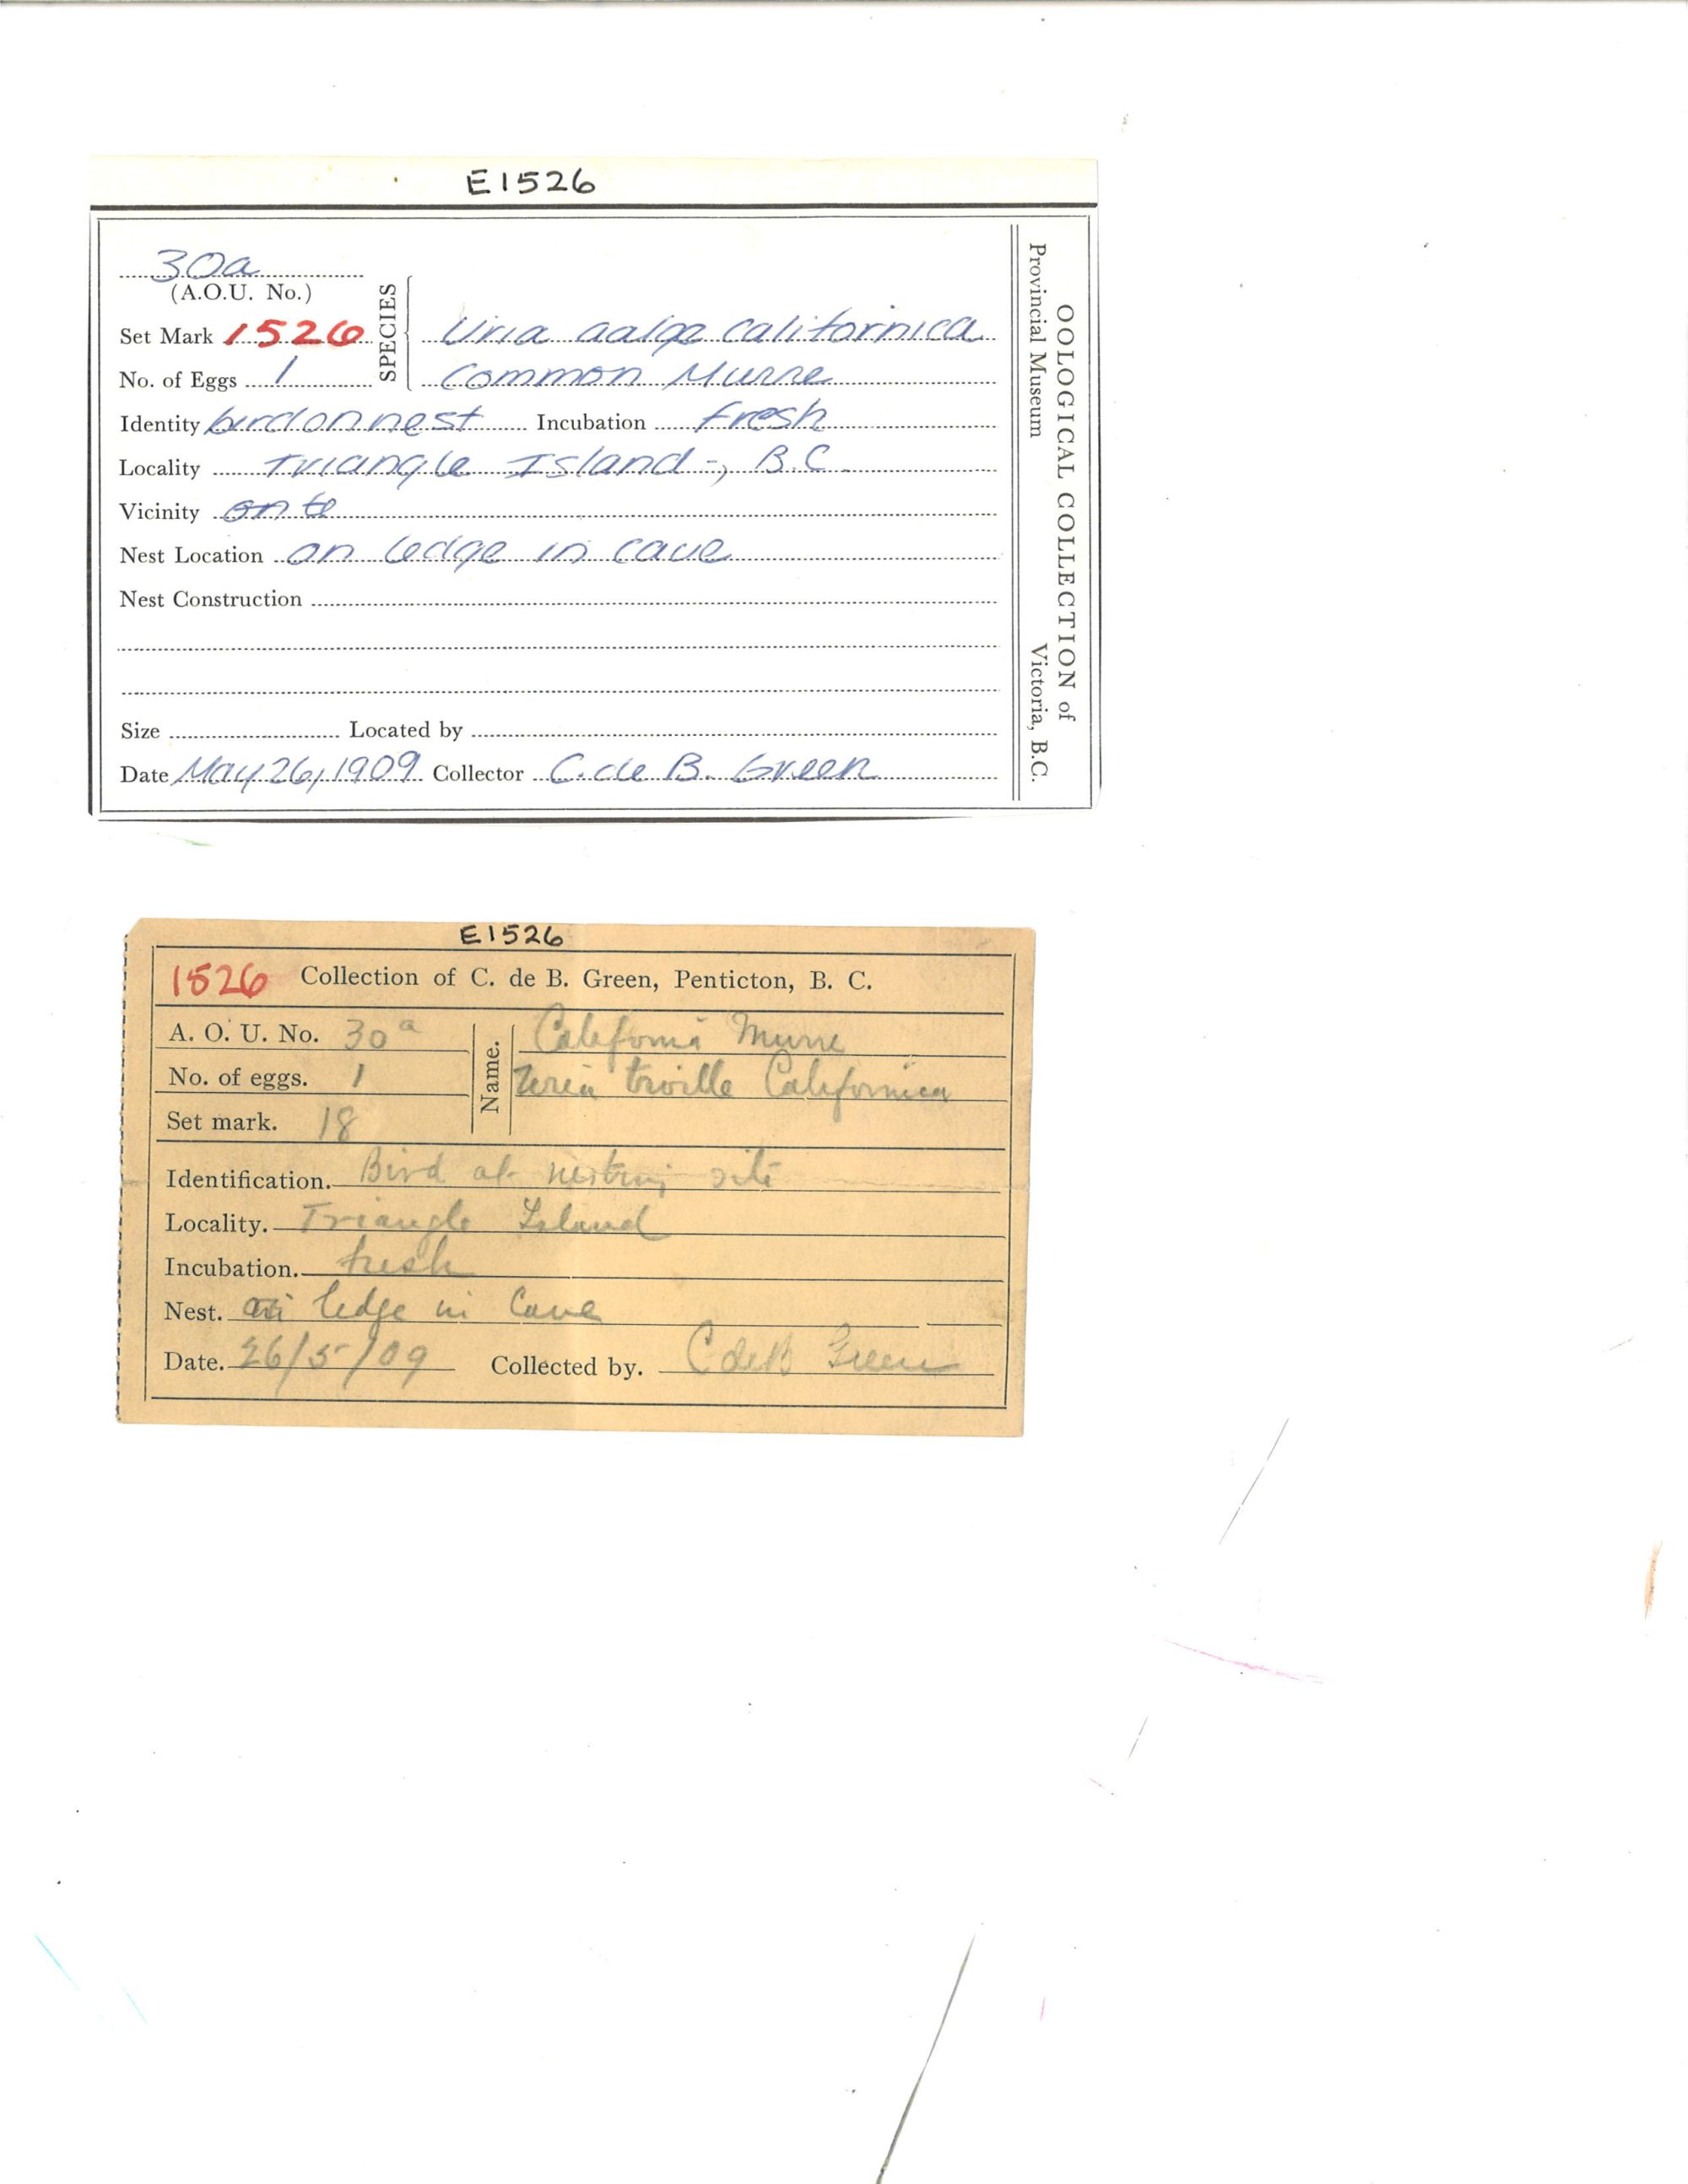 E1526
30a
(A.O.U. No.)
Set Mark 1526
No. of Eggs 1
SPECIES
Uria aalge californica
Common Murre
Identity bird on nest Incubation fresh
Locality Triangle Island-, B.C.
Vicinity
Nest Location on ledge in cave
Nest Construction
Size Located by
Date May 26, 1909 Collector C. de B. Green
OOLOGICAL COLLECTION of
Provincial Museum Victoria, B.C.
E1526
1526 Collection of C. de B. Green, Penticton, B. C.
A. O. U. No. 30a
No. of eggs. 1
Set mark. 18
Name.
California Murre
Uria troille Californica
Identification. Bird at nesting site
Locality. Triangle Island
Incubation. fresh
Nest. on ledge in Cave
Date. 26/5/09 Collected by. C de B Green